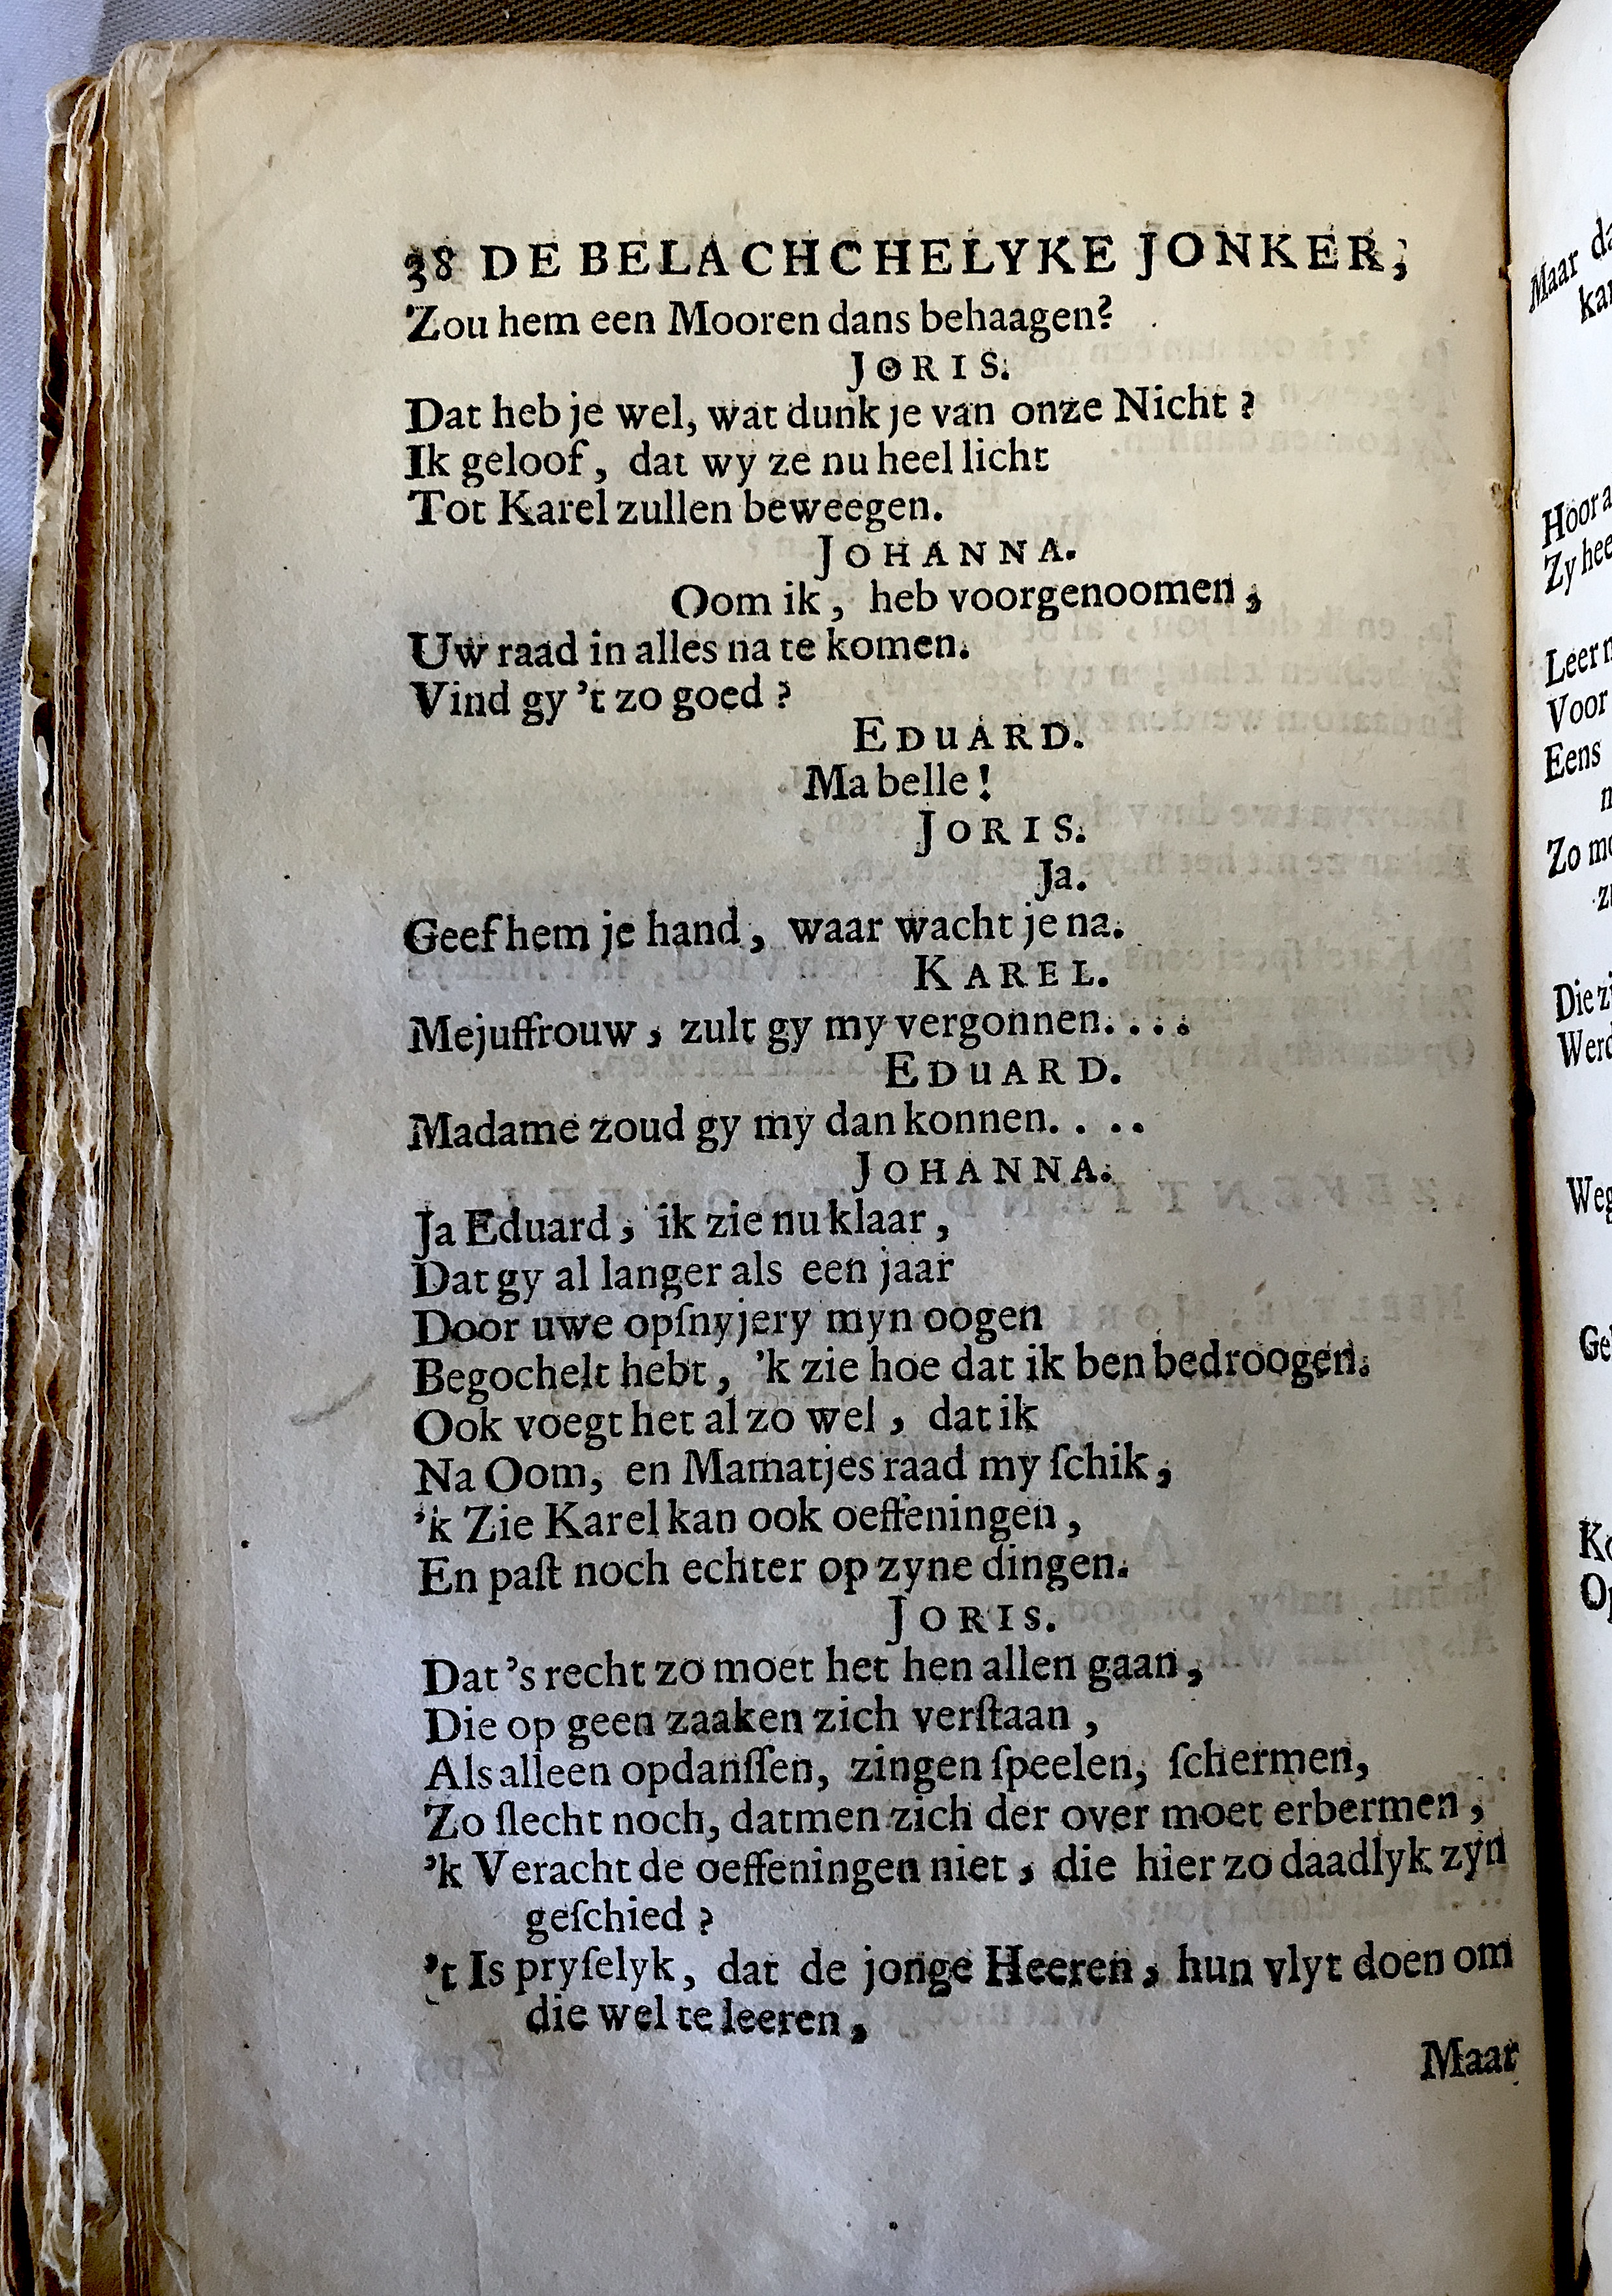 38 DE BELACHCHELYKE JONKER,
Zou hem een Mooren dans behaagen?
JORIS.
Dat heb je wel, wat dunk je van onze Nicht?
Ik geloof, dat wy ze nu heel licht
Tot Karel zullen beweegen.
JOHANNA.
Oom ik, heb voorgenoomen,
Uw raad in alles na te komen.
Vind gy 't zo goed?
EDUARD.
Ma belle!
JORIS.
Ja.
Geef hem je hand, waar wacht je na.
KAREL.
Mejuffrouw, zult gy my vergonnen....
EDUARD.
Madame zoud gy my dan konnen....
JOHANNA.
Ja Eduard, ik zie nu klaar,
Dat gy al langer als een jaar
Door uwe opſnyjery myn oogen
Begochelt hebt, 'k zie hoe dat ik ben bedroogen.
Ook voegt het al zo wel, dat ik
Na Oom, en Mamatjes raad my ſchik,
'k Zie Karel kan ook oeffeningen,
En paſt noch echter op zyne dingen.
JORIS.
Dat 's recht zo moet het hen allen gaan,
Die op geen zaaken zich verſtaan,
Als alleen op danſſen, zingen ſpeelen, ſchermen,
Zo ſlecht noch, datmen zich der over moet erbermen,
'k Veracht de oeffeningen niet, die hier zo daadlyk zyn
geſchied?
't Is pryſelyk, dat de jonge Heeren, hun vlyt doen om
die wel te leeren,
Maar
Maar
Hoor
Zy hee
Leer
Voor
Eens
Zo
Die
Weg